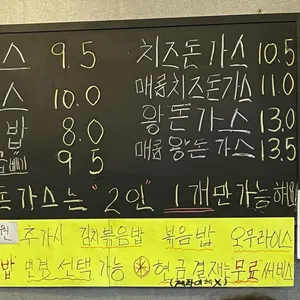 스 9.5
치즈돈가스 10.5
스 10.0
매콤치즈돈가스 11.0
밥 8.0
왕돈가스 13.0
9.5
매콤왕돈가스 13.5
돈가스는 "2인" 1개만 가능해
추가시 김치볶음밥 볶음밥 오무라이스
밥 변경 선택가능 ※ 현금결제시 무료써비스